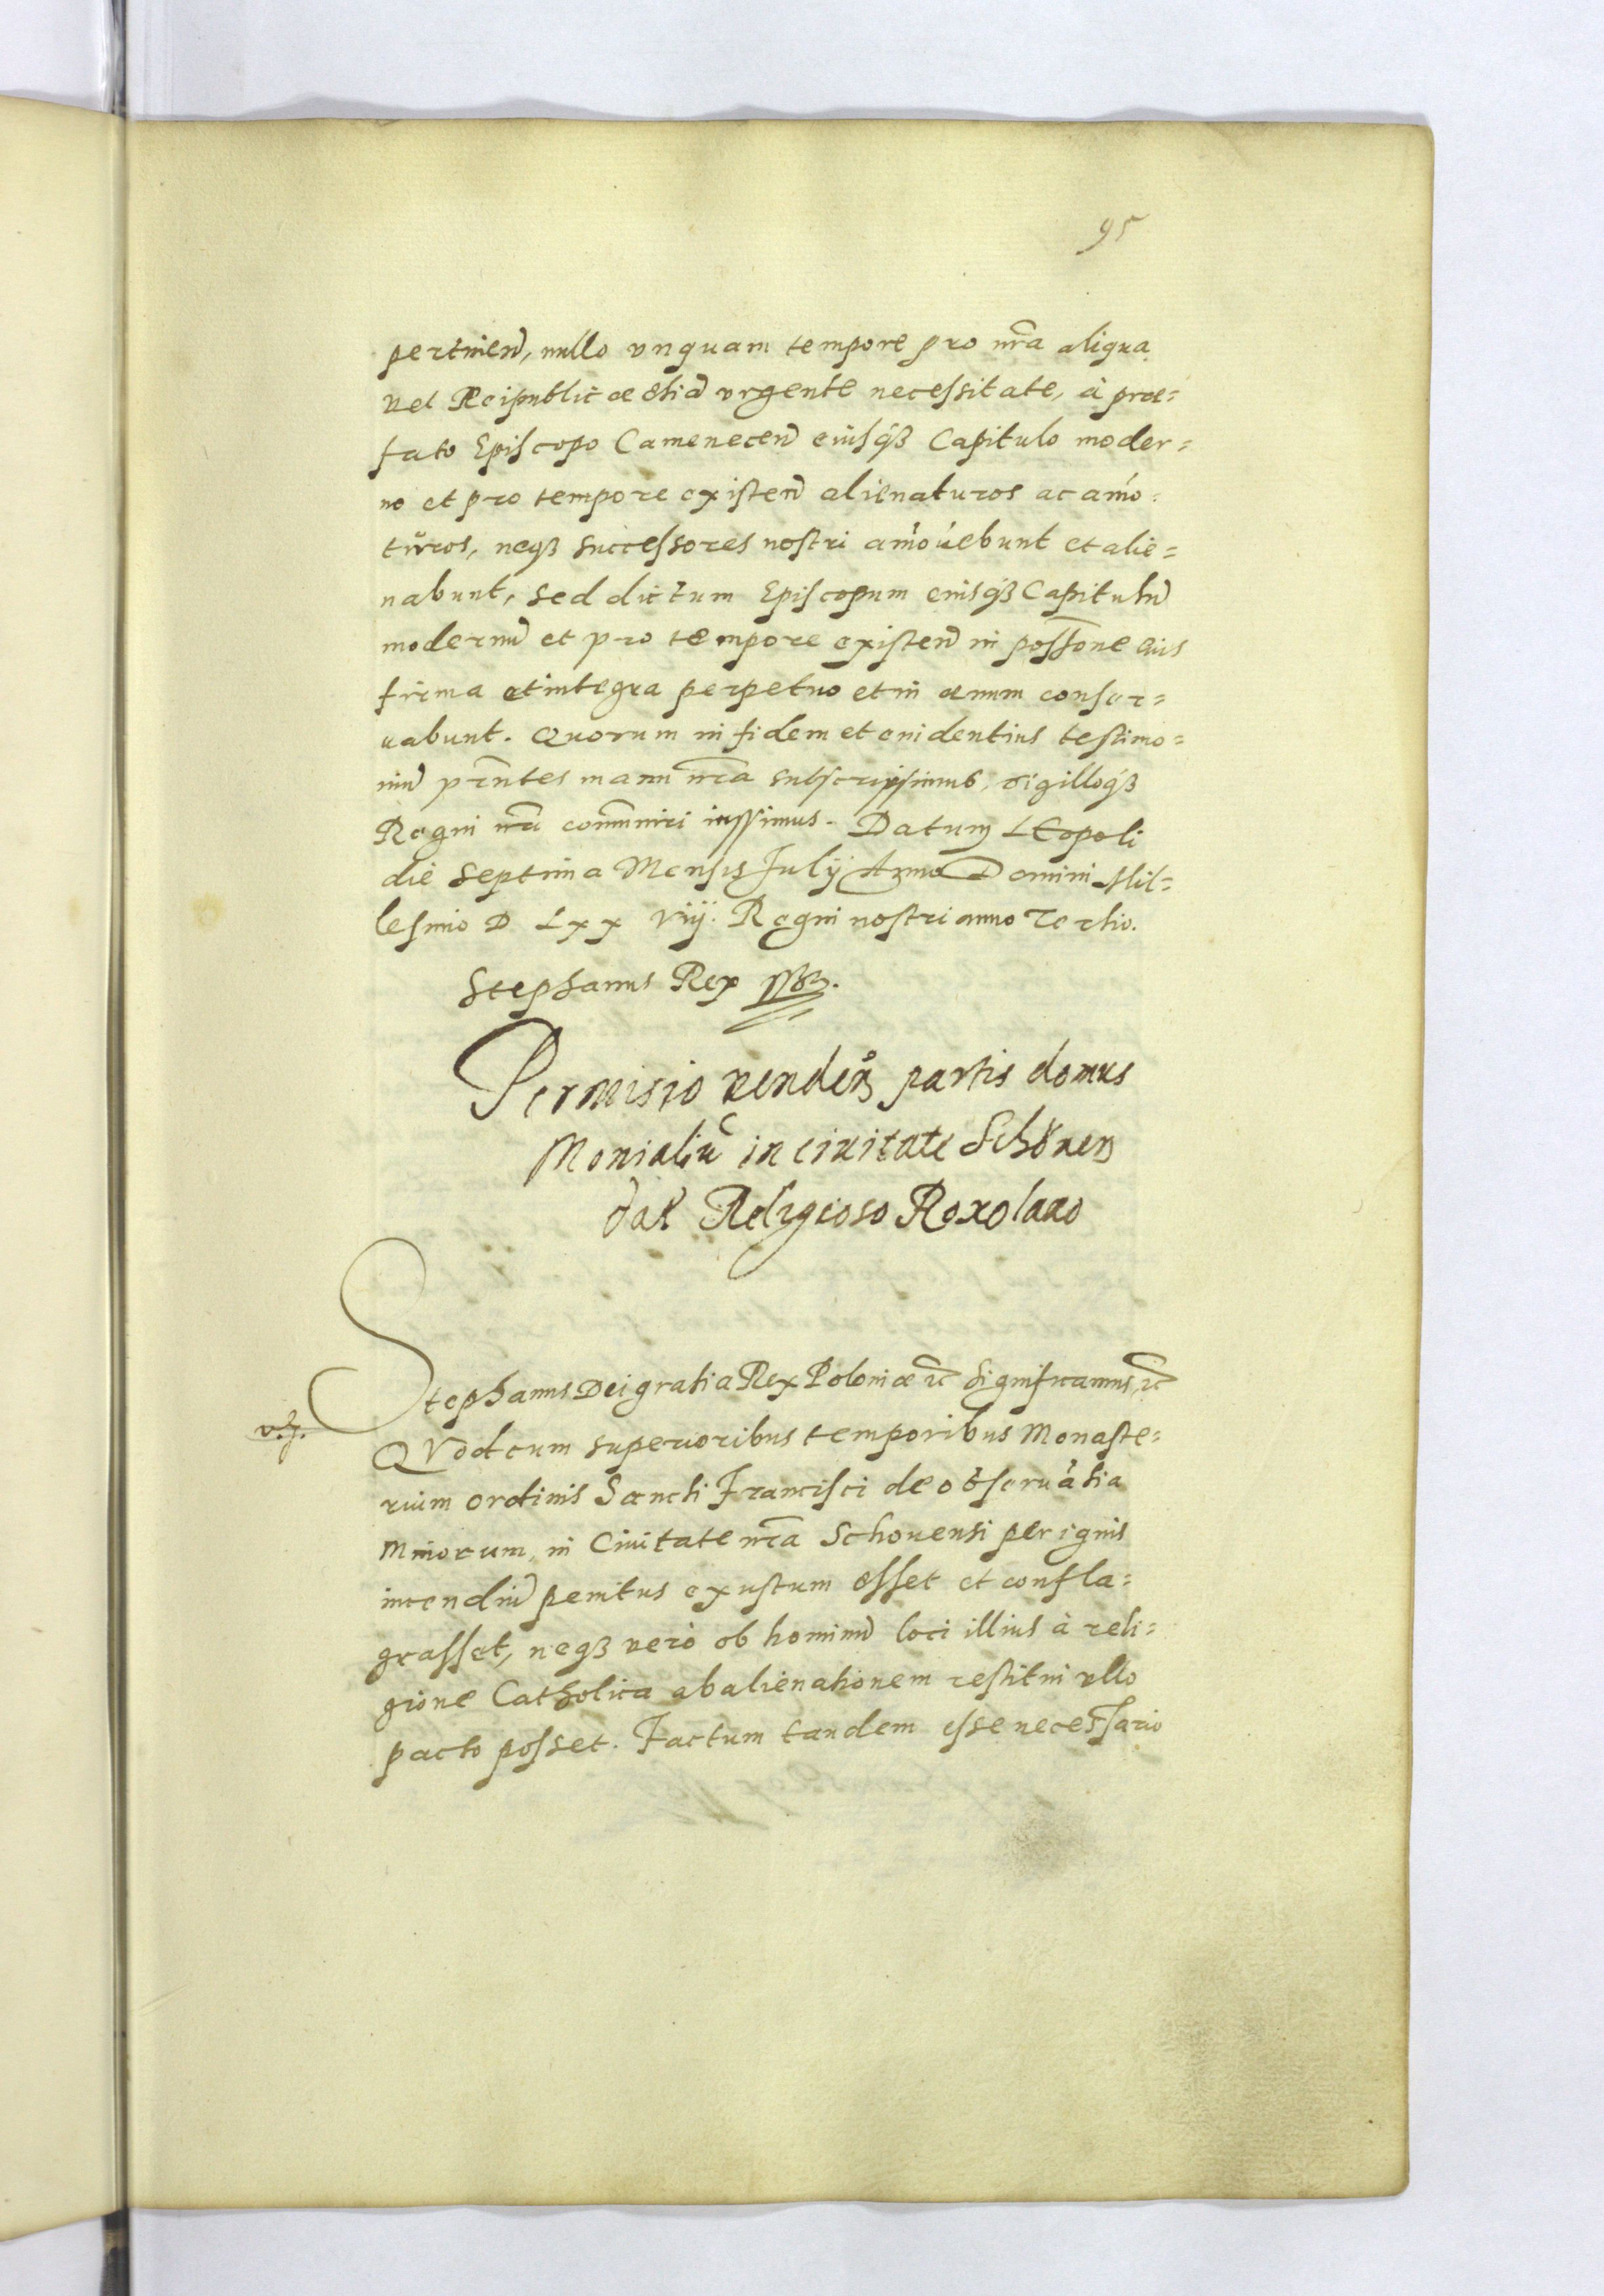 95
pertinen̄, nullo vnquam tempore pro nr̄a aliqua
vel Reipublicæ etia̅ vrgente necessitate, à præ=
fato Episcopo Camenecen̄ eiusq₃ Capitulo moder=
no et pro tempore existen̄ alienaturos ac amo=
turos, neq₃ successores nostri amouebunt et alie=
nabunt, sed dictum Episcopum eiusq₃ Capitulu̅
modernu̅ et pro tempore existen̄ in poss̄one eius
firma et integra perpetuo et in æuum conser=
uabunt. Quorum in fidem et euidentius testimo=
niu̅ pr̄ntes manu nr̄a subscripsimus, sigilloq₃
Regni nr̄i com̄muniri iussimus. Datum Leopoli
die septima Mensis Iulÿ Anno Domini Mil=
lesimo D Lxx viij. Regni nostri anno Tertio.
Stephanus Rex sst.
Permisio venden̄ partis domus
Monialiu̅ in ciuitate Schouen̄
dat Religioso Roxolano
Stephanus Dei gratia Rex Poloniæ ꝛc̄ Significamus, ꝛc̄
Quod cum superioribus temporibus Monaste=
rium ordinis Sancti Francisci de obseruātia
Minorum, in Ciuitate nr̄a Schouensi per ignis
incendiu̅ penitus exustum esset et confla=
grasset, neq₃ verò ob hominu̅ loci illius à reli=
gione Catholica abalienationem restitui vllo
pacto posset. Factum tandem esse necessario